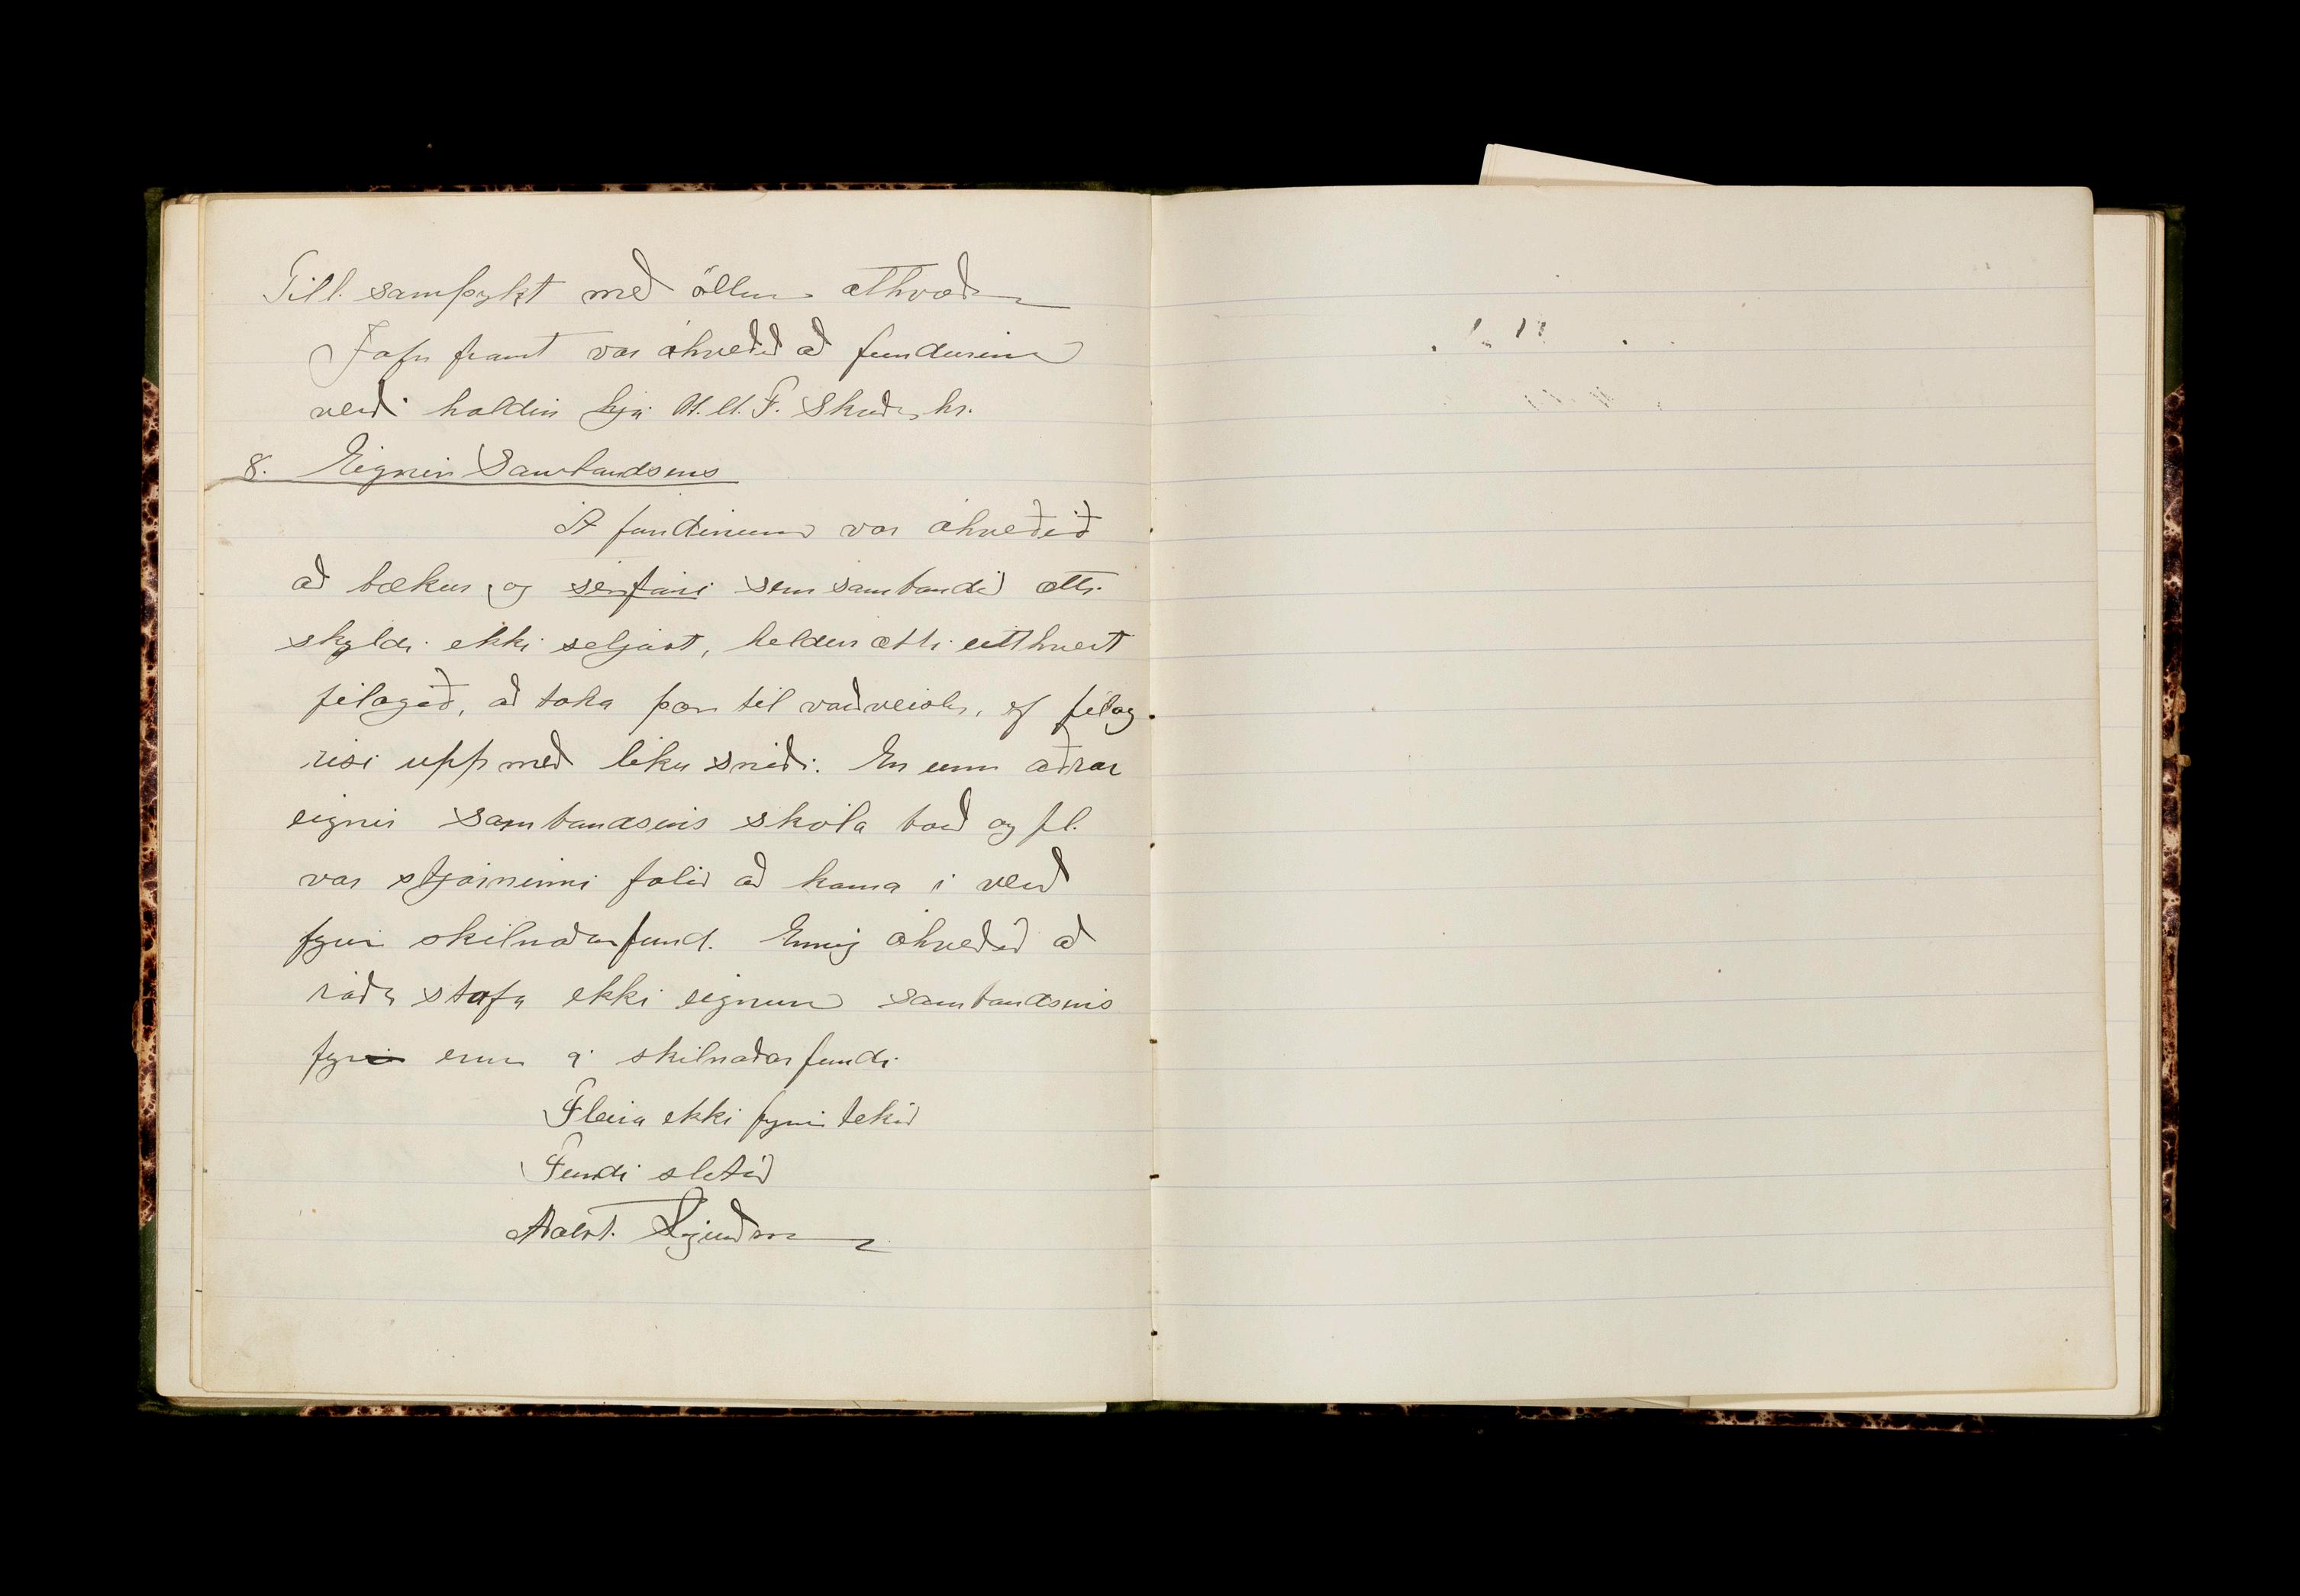 Till. samþykt með öllum atkvæðum
Jafn framt var ákveðið að fundurinn
verði haldin hjá U.M.F. Skriðuhr.
8. Eignir Sambandsins
Á fundinum var ákveðið
að bækur og sérstari sem sambandið ætti
skyldi ekki seljast, heldur ætti eitthvert
félagið, að taka þær til varðveislu, ef félag
risi upp með líku sniði. En um aðrar
eignir Sambandsins skóla borð og fl.
var stjórninni falið að koma í verð
fyrir skilnaðarfund. Einnig ákveðið að
ráða stafa ekki eignum sambandsins
fyr enn á skilnaðarfundi
Fleira ekki fyrir tekið
Fundi slitið